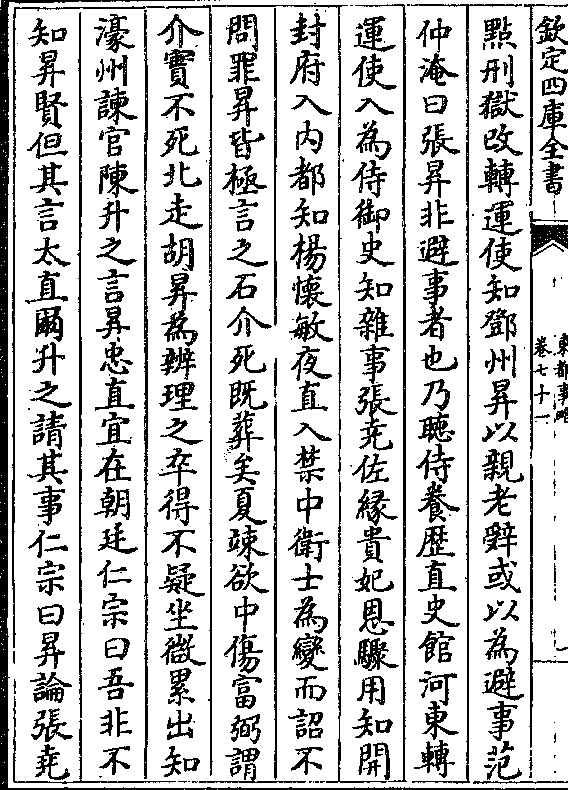 欽定四庫全書
東都事略
卷七十一
點刑獄改轉運使知鄧州昇以親老辭或以為避事范
仲淹曰張昇非避事者也乃聽侍養歷直史館河東轉
運使入為侍御史知雜事張尭佐緣貴妃恩驟用知開
封府入內都知楊懷敏夜直入禁中衛士為變而詔不
問罪昇皆極言之石介死既葬矣夏竦欲中傷富弼謂
介實不死北走胡昇為辨理之卒得不疑坐微累出知
濠州諫官陳升之言昇忠直宜在朝廷仁宗曰吾非不
知昇賢但其言太直爾升之請其事仁宗曰昇論張尭